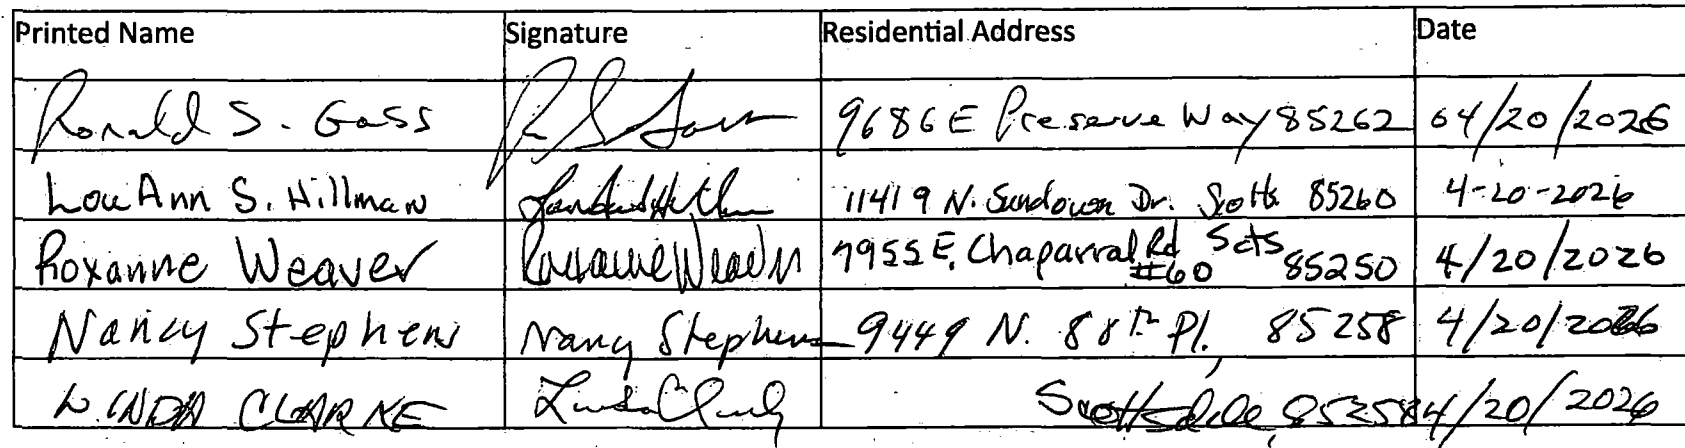 Printed Name Signature Residential Address Date
Ronald S. Gass R S Gass 9686 E Preserve Way 85262 04/20/2026
LouAnn S. Hillman 11419 N. Sundown Dr. Scotts 85260 4-20-2026
Roxanne Weaver Roxanne Weaver 7955 E. Chaparral Rd Scts #60 85250 4/20/2026
Nancy Stephens Nancy Stephens 9449 N. 88th Pl. 85258 4/20/2026
LINDA CLARKE Linda Clarke Scottsdale, 85258 4/20/2026